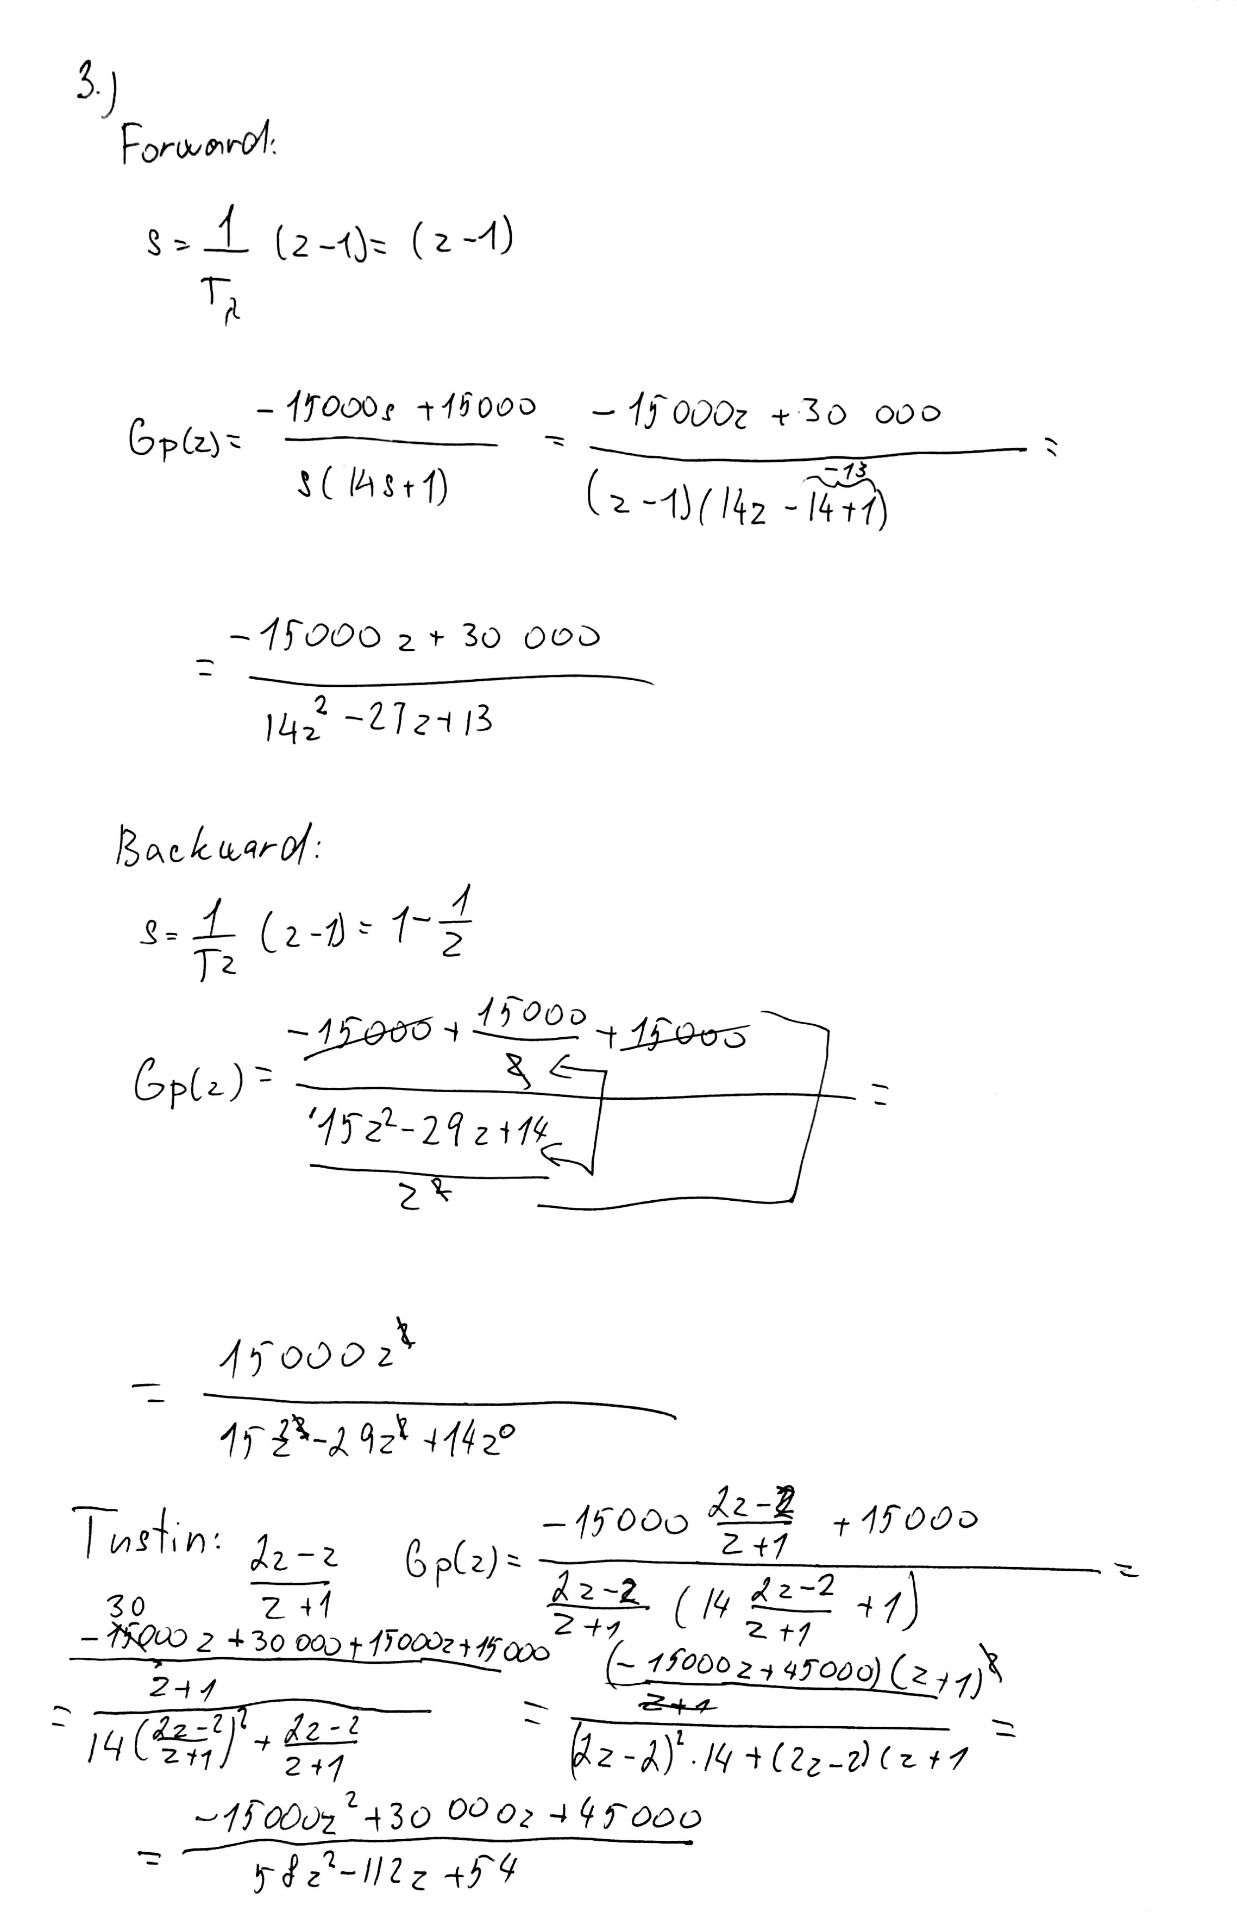 3.)
Forward:
s = 1/T_z (z-1) = (z-1)
Gp(z) = (-15000s + 15000)/(s(14s+1)) = (-15000z + 30 000)/((z-1)(14z - 14+1)) =
-13
= (-15000z + 30 000)/(14z² - 27z + 13)
Backward:
s = 1/Tz (z-1) = 1 - 1/z
Gp(z) = (-15000 + 15000/z + 15000)/((15z² - 29z + 14)/z²) =
= 15000z/(15z² - 29z + 14z⁰)
Tustin: (2z-2)/(z+1) Gp(z) = (-15000 (2z-2)/(z+1) + 15000)/((2z-2)/(z+1) (14 (2z-2)/(z+1) + 1)) =
= ((-30000z + 30 000 + 15000z + 15000)/(z+1))/(14((2z-2)/(z+1))² + (2z-2)/(z+1)) = ((-15000z + 45000)(z+1)/(z+1))/((2z-2)²·14 + (2z-2)(z+1) =
= (-15000z² + 30 000z + 45000)/(58z² - 112z + 54)